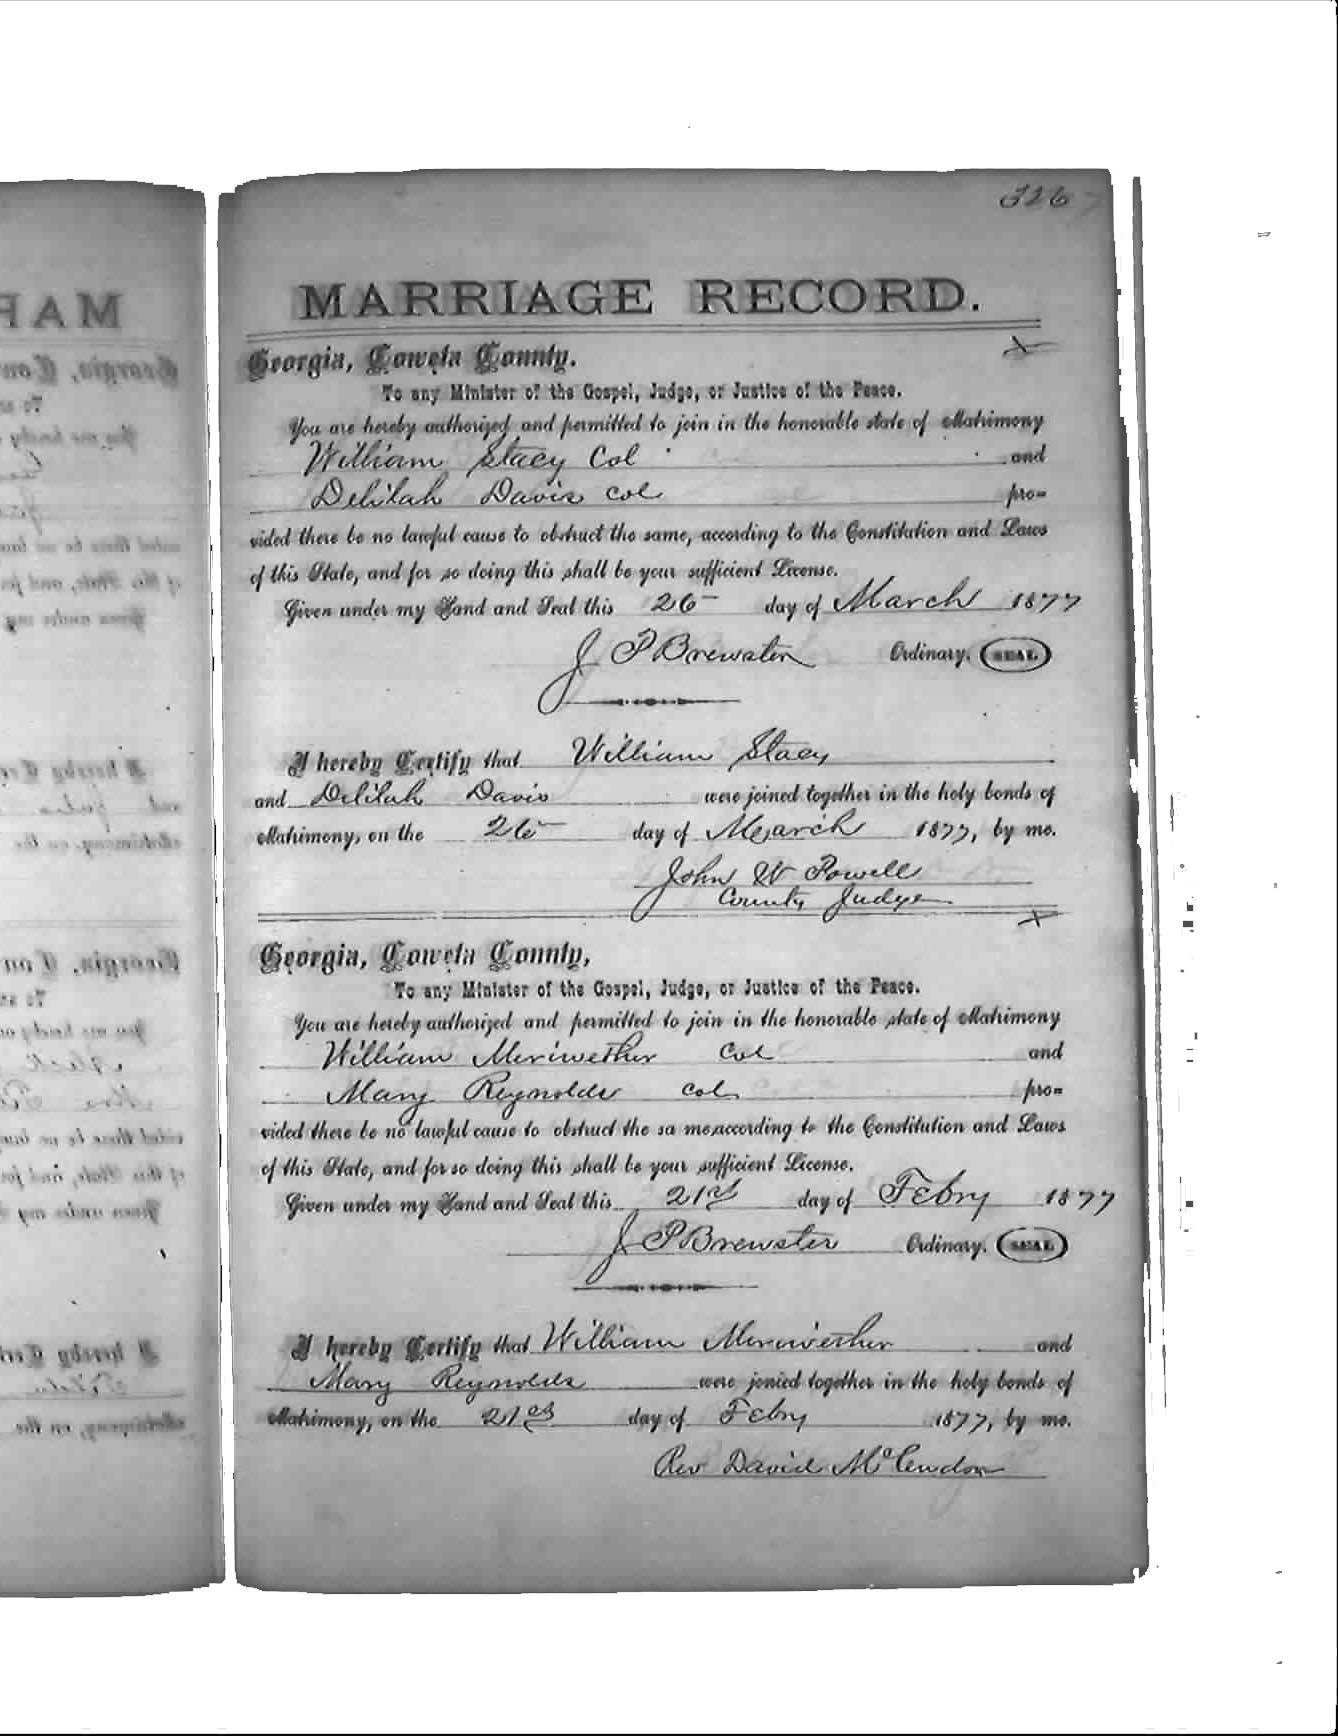 326
MARRIAGE RECORD.
Georgia, Coweta County.
To any Minister of the Gospel, Judge, or Justice of the Peace.
You are hereby authorized and permitted to join in the honorable state of Matrimony
William Stacy Col and
Delilah Davis Col pro=
vided there be no lawful cause to obstruct the same, according to the Constitution and Laws
of this State, and for so doing this shall be your sufficient License.
Given under my Hand and Seal this day of March 1877
J P Brewster Ordinary. (SEAL)
I hereby Certify that William Stacy
and Delilah Davis were joined together in the holy bonds of
Matrimony, on the day of March 1877, by me.
John W Powell
County Judge
Georgia, Coweta County,
To any Minister of the Gospel, Judge, or Justice of the Peace.
You are hereby authorized and permitted to join in the honorable state of Matrimony
William Meriwether Col and
Mary Reynolds col pro=
vided there be no lawful cause to obstruct the sa me, according to the Constitution and Laws
of this State, and for so doing this shall be your sufficient License.
Given under my Hand and Seal this 21st day of Febry 1877
J P Brewster Ordinary. (SEAL)
I hereby Certify that William Meriwether and
Mary Reynolds were jonied together in the holy bonds of
Matrimony, on the 21st day of Febry 1877, by me.
Rev David McClendon